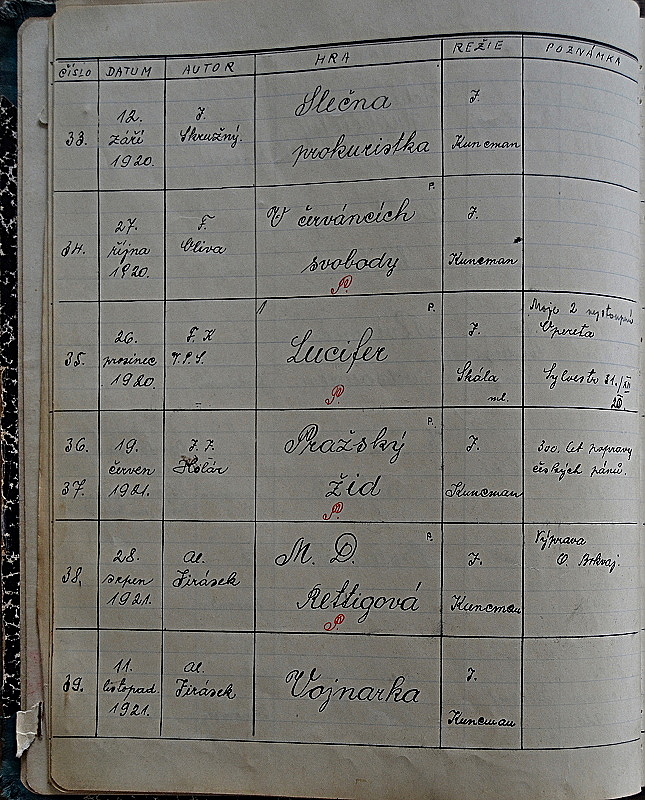 ČÍSLO DATUM AUTOR HRA REŽIE POZNÁMKA
33. 12. září 1920. J. Skružný. Slečna prokuristka J. Kuncman
34. 27. října 1920. F. Oliva V červáncích svobody P. P. J. Kuncman
35. 26. prosinec 1920. F. X T.P.S. Lucifer P. P. J. Skála ml. Moje 2 vystoupení Opereta Sylvestr 31./XII 20
36. 37. 19. červen 1921. J. J. Kolár Pražský žid P. P. J. Kuncman 300. let popravy českých pánů.
38. 28. srpen 1921. Al. Jirásek M. D. Rettigová P. P. J. Kuncman Výprava O. Brkvaj.
39. 11. listopad. 1921. Al. Jirásek Vojnarka J. Kuncman